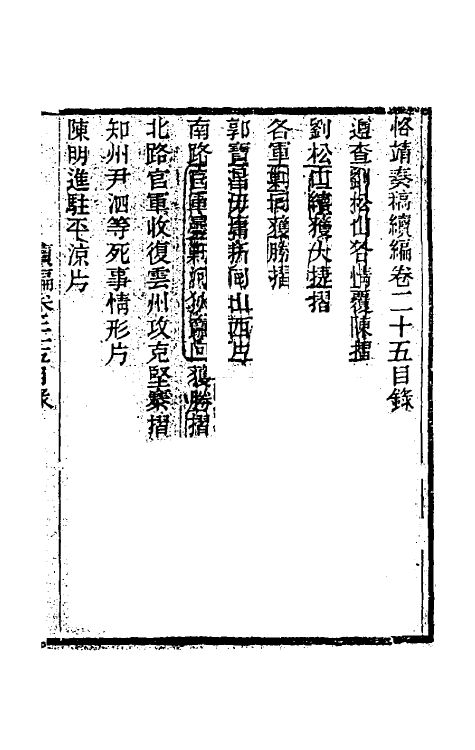 恪靖奏稿續編卷二十五目錄
遵查劉松山各情覆陳摺
劉松山續獲大捷摺
各軍剿囘獲勝摺
郭寶昌毋庸折囘山西片
南路官軍剿河狄囘獲勝摺
北路官軍收復雲州攻克堅寨摺
知州尹泗等死事情形片
陳明進駐平涼片
續編卷二十五目錄